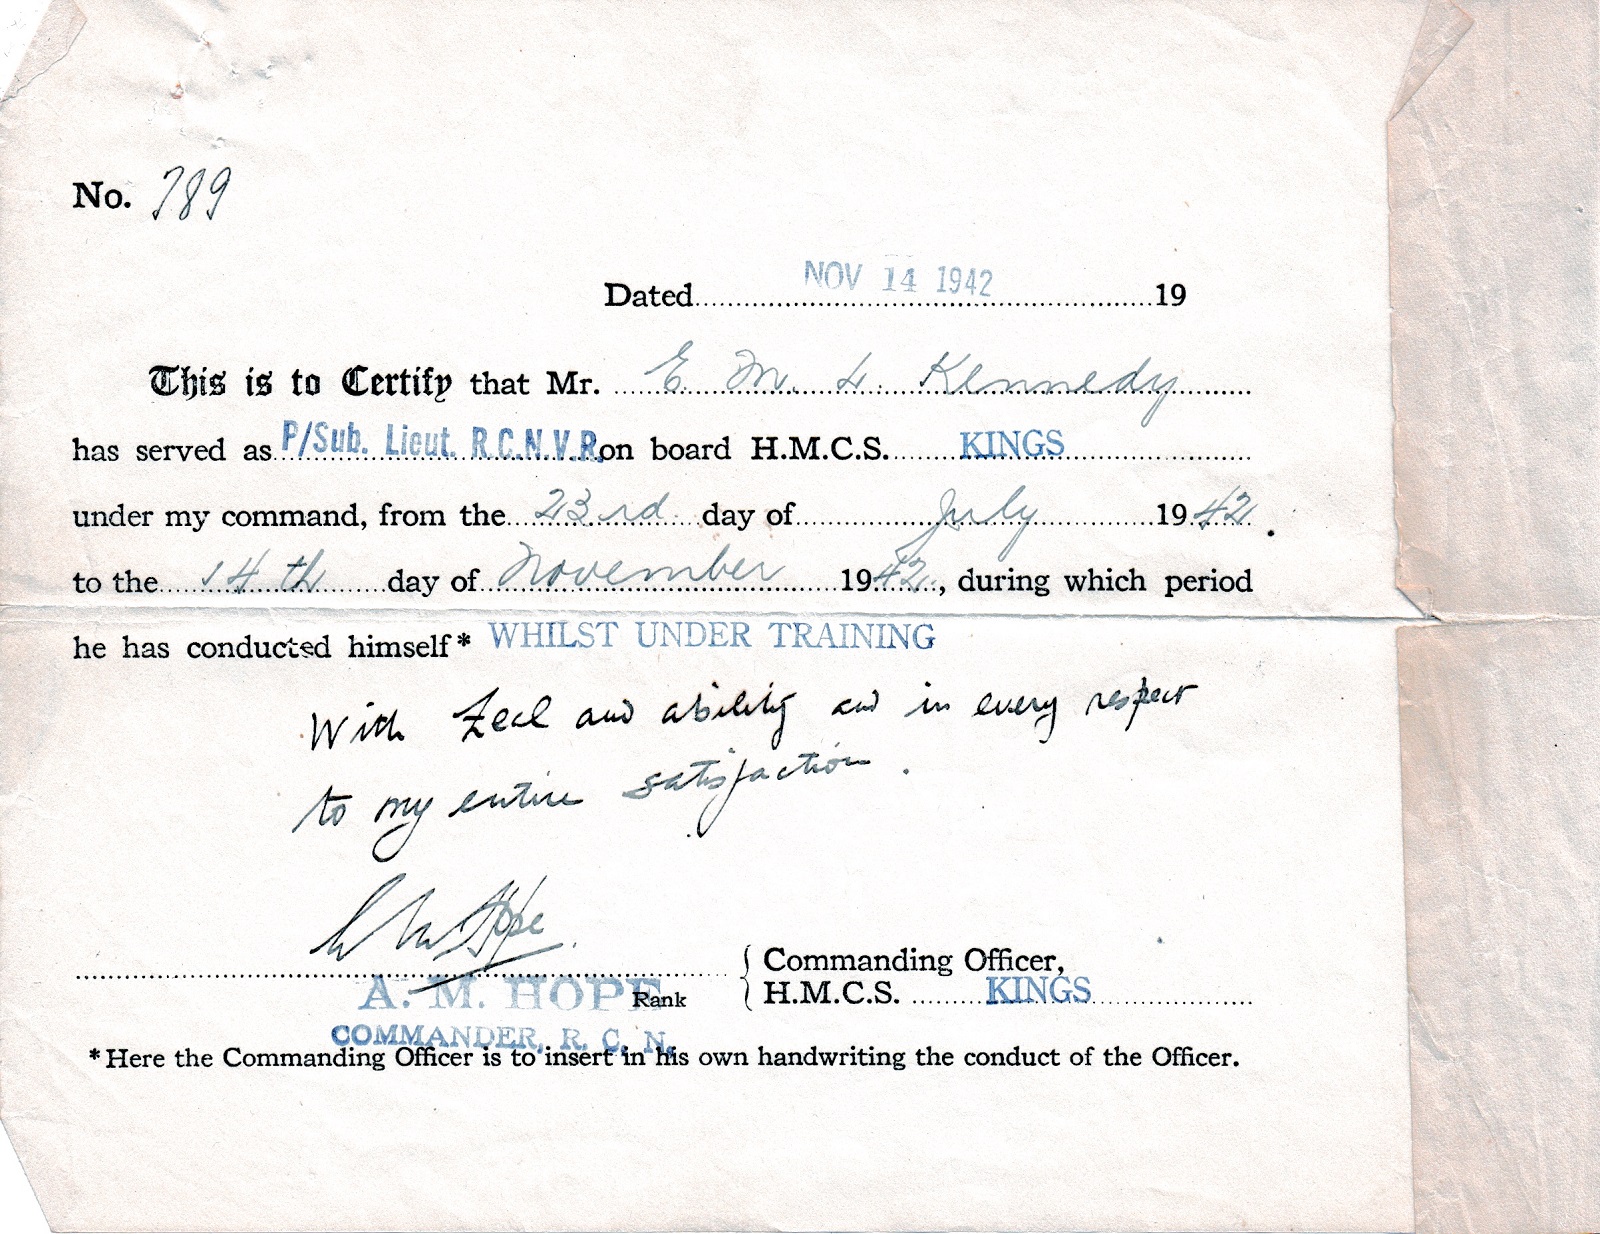 No. 789
Dated NOV 14 1942 19
This is to Certify that Mr. E. M. L. Kennedy
has served as P/Sub. Lieut. R.C.N.V.R. on board H.M.C.S. KINGS
under my command, from the 23rd day of July 1942.
to the 14th day of November 1942, during which period
he has conducted himself* WHILST UNDER TRAINING
With Zeal and ability and in every respect
to my entire satisfaction.
A M Hope
Commanding Officer,
A. M. HOPE Rank H.M.C.S. KINGS
COMMANDER, R. C. N.
*Here the Commanding Officer is to insert in his own handwriting the conduct of the Officer.